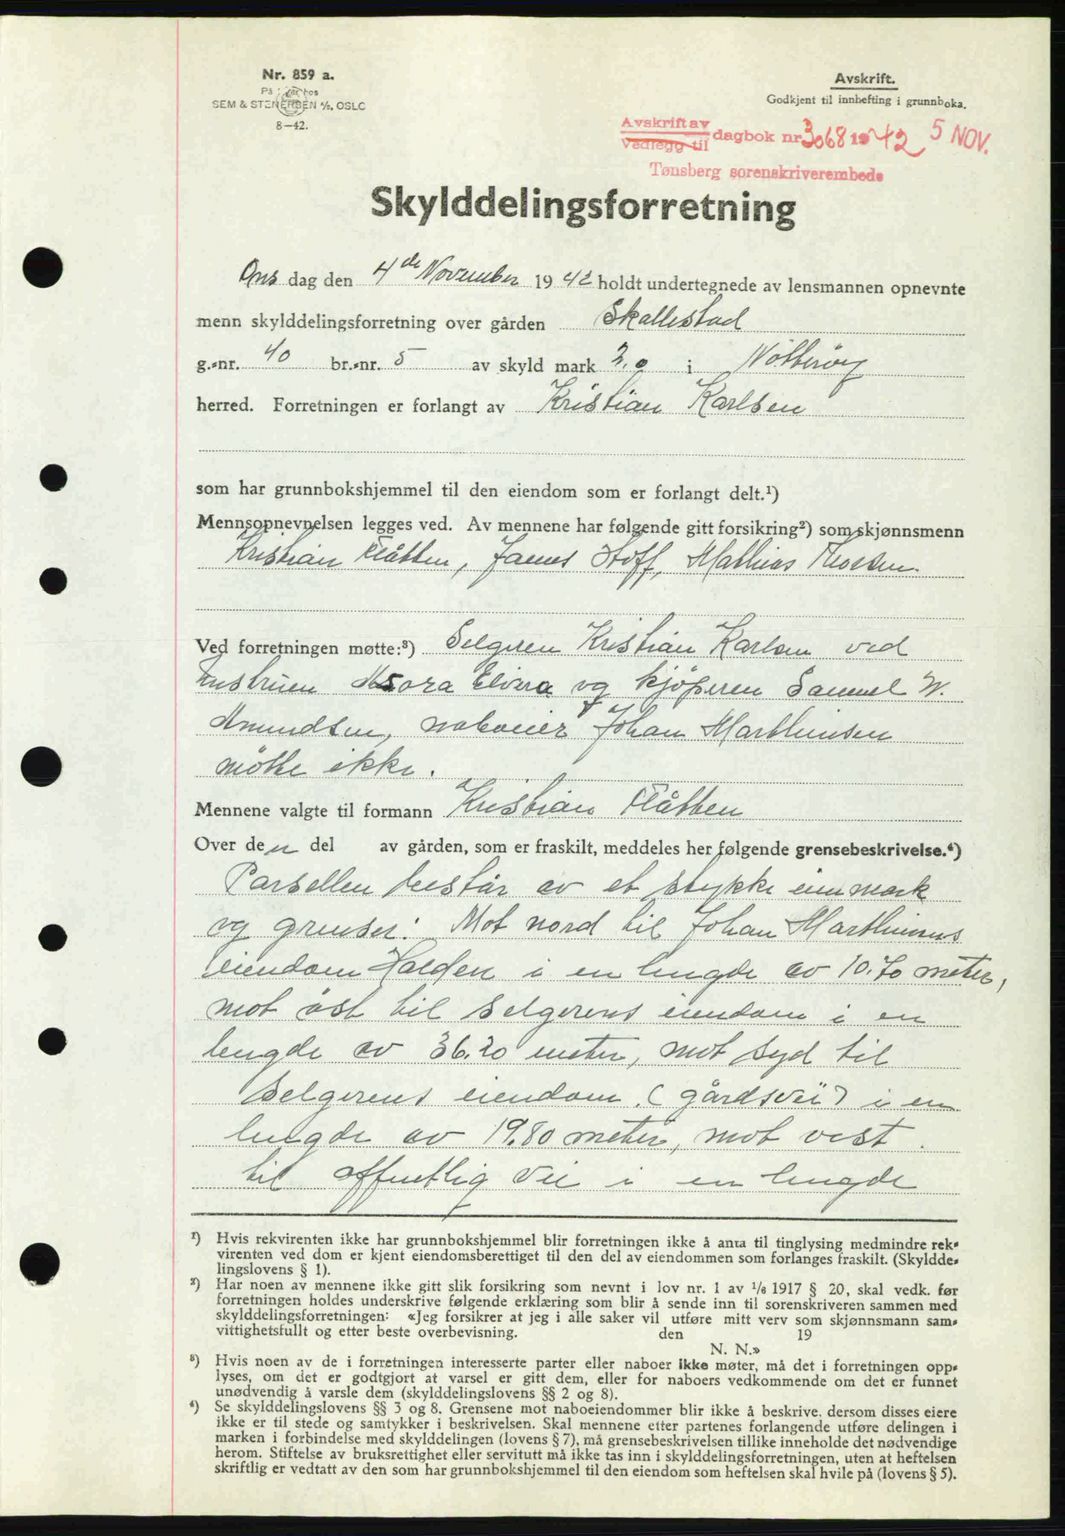 Nr. 859 a.
På lager hos
SEM & STENERSEN A/S, OSLO
8—42.
Avskrift.
Godkjent til innhefting i grunnboka.
Avskrift av
Vedlegg til
dagbok nr 3068 19 42 5 NOV.
Tønsberg sorenskriverembede
Skylddelingsforretning
Ons dag den 4de November 1942 holdt undertegnede av lensmannen opnevnte
menn skylddelingsforretning over gården Skallestad
g.-nr. 40 br.-nr. 5 av skyld mark 2.0 i Nøtterøy
herred. Forretningen er forlangt av Kristian Karlsen
som har grunnbokshjemmel til den eiendom som er forlangt delt.¹)
Mennsopnevnelsen legges ved. Av mennene har følgende gitt forsikring²) som skjønnsmenn
Kristian Flåtten, James Hoff, Mathias Thorsen.
Ved forretningen møtte:³) Selgeren Kristian Karlsen ved
hustruen Elvira og kjøperen Samuel W.
Amundsen, naboeier Johan Marthinsen
møtte ikke.
Mennene valgte til formann Kristian Flåtten
Over den del av gården, som er fraskilt, meddeles her følgende grensebeskrivelse.⁴)
Parsellen består av et stykke innmark
og grenser: Mot nord til Johan Marthinsens
eiendom Halden i en lengde av 10.70 meter,
mot øst til selgerens eiendom i en
lengde av 36.20 meter, mot syd til
selgerens eiendom (gårdsvei) i en
lengde av 19.80 meter, mot vest
til offentlig vei i en lengde
¹) Hvis rekvirenten ikke har grunnbokshjemmel blir forretningen ikke å anta til tinglysing medmindre rek-
virenten ved dom er kjent eiendomsberettiget til den del av eiendommen som forlanges fraskilt. (Skyldde-
lingslovens § 1).
²) Har noen av mennene ikke gitt slik forsikring som nevnt i lov nr. 1 av 1/6 1917 § 20, skal vedk. før
forretningen holdes underskrive følgende erklæring som blir å sende inn til sorenskriveren sammen med
skylddelingsforretningen: «Jeg forsikrer at jeg i alle saker vil utføre mitt verv som skjønnsmann sam-
vittighetsfullt og etter beste overbevisning. den 19
N. N.»
³) Hvis noen av de i forretningen interesserte parter eller naboer ikke møter, må det i forretningen opp-
lyses, om det er godtgjort at varsel er gitt dem, eller for naboers vedkommende om det er funnet
unødvendig å varsle dem (skylddelingslovens §§ 2 og 8).
⁴) Se skylddelingslovens §§ 3 og 8. Grensene mot naboeiendommer blir ikke å beskrive, dersom disses eiere
ikke er til stede og samtykker i beskrivelsen. Skal mennene etter partenes forlangende utføre delingen i
marken i forbindelse med skylddelingen (lovens § 7), må grensebeskrivelsen tillike inneholde det nødvendige
herom. Stiftelse av bruksrettighet eller servitutt må ikke tas inn i skylddelingsforretningen, uten at heftelsen
skriftlig er vedtatt av den som har grunnbokshjemmel til den eiendom som heftelsen skal hvile på (lovens § 5).